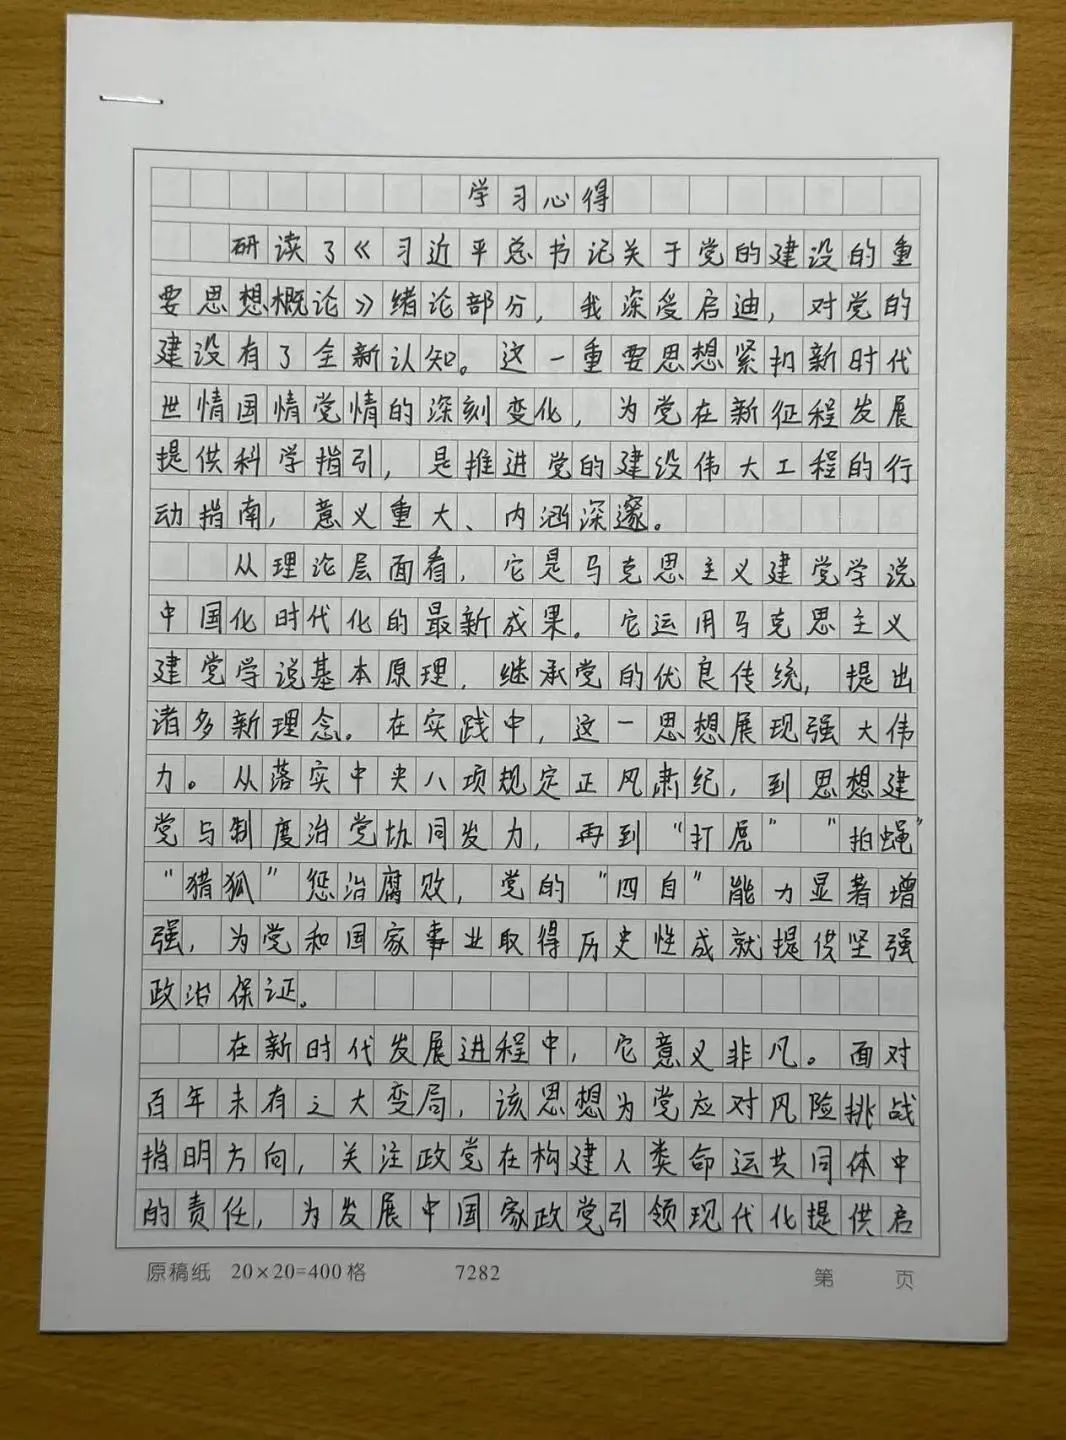 学习心得
研读了《习近平总书记关于党的建设的重
要思想概论》绪论部分，我深受启迪，对党的
建设有了全新认知。这一重要思想紧扣新时代
世情国情党情的深刻变化，为党在新征程发展
提供科学指引，是推进党的建设伟大工程的行
动指南，意义重大、内涵深邃。
从理论层面看，它是马克思主义建党学说
中国化时代化的最新成果。它运用马克思主义
建党学说基本原理，继承党的优良传统，提出
诸多新理念。在实践中，这一思想展现强大伟
力。从落实中央八项规定正风肃纪，到思想建
党与制度治党协同发力，再到“打虎”“拍蝇”
“猎狐”惩治腐败，党的“四自”能力显著增
强，为党和国家事业取得历史性成就提供坚强
政治保证。
在新时代发展进程中，它意义非凡。面对
百年未有之大变局，该思想为党应对风险挑战
指明方向，关注政党在构建人类命运共同体中
的责任，为发展中国家政党引领现代化提供启
原稿纸 20×20=400格 7282 第 页